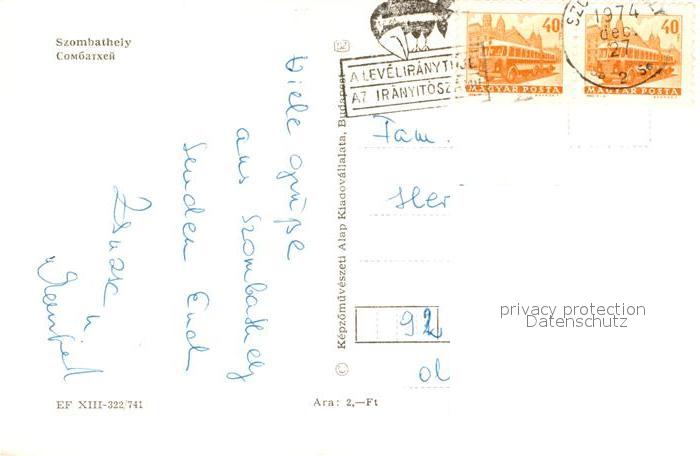 Szombathely
Сомбатхей
Viele Grüße
aus Szombathely
senden Euch
Zsuzsa u.
Manfred
EF XIII-322/741
Ára: 2,—Ft
© Képzőművészeti Alap Kiadóvállalata, Budapest
A LEVÉLIRÁNYÍTÁS
AZ IRÁNYÍTÓSZÁM
40
MAGYAR POSTA
40
MAGYAR POSTA
1974
dec.
27
Fam.
Her
92
ol
privacy protection
Datenschutz